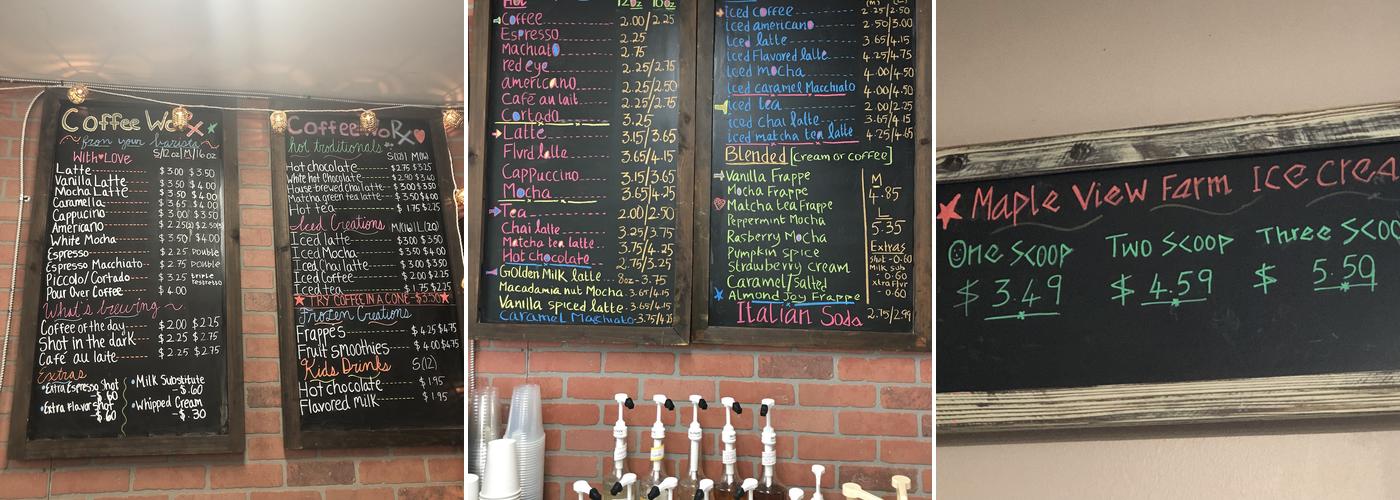 Coffee WoRX
from your barista
With LOVE S/12oz M/16oz
Latte $3.00 $3.50
Vanilla Latte $3.50 $4.00
Mocha Latte $3.50 $4.00
Caramella $3.65 $4.00
Cappucino $3.00 $3.50
Americano $2.25
White Mocha $3.50 $4.00
Espresso $2.25 Double
Espresso Macchiato $2.75 Double
Piccolo/Cortado $3.25 triple restresso
Pour Over Coffee $4.00
What's brewing
Coffee of the day $2.00 $2.25
Shot in the dark $2.25 $2.75
Café au laite $2.25 $2.75
Extras
•Extra Espresso Shot -$.60
•Extra Flavor shot -$.60
•Milk Substitute -$.60
•Whipped Cream -$.30
Coffee WoRX
hot traditionals
S(12) M(16)
Hot chocolate $2.75 $3.25
White hot Chocolate $2.90 $3.40
House-brewed chai latte $3.00 $3.50
Matcha green tea latte $3.50 $4.00
Hot tea $1.75 $2.25
Iced Creations M(16) L(20)
Iced latte $3.00 $3.50
Iced Mocha $3.50 $4.00
Iced Chai latte $3.00 $3.50
Iced Coffee $2.00 $2.25
Iced tea $1.75 $2.25
TRY COFFEE IN A CONE -$3.50
Frozen Creations
Frappés $4.25 $4.75
Fruit smoothies $4.00 $4.75
Kids Drinks S(12)
Hot chocolate $1.95
Flavored milk $1.95
Hot 12oz 16oz
Coffee 2.00/2.25
Espresso 2.25
Machiato 2.75
red eye 2.25/2.75
americano 2.25/2.50
Café au lait 2.25/2.75
Cortado 3.25
Latte 3.15/3.65
Flvrd latte 3.65/4.15
Cappuccino 3.15/3.65
Mocha 3.65/4.25
Tea 2.00/2.50
Chai latte 3.25/3.75
Matcha tea latte 3.75/4.25
Hot chocolate 2.75/3.25
Golden Milk latte 8oz-3.75
Macadamia nut Mocha-3.65/4.15
Vanilla spiced latte-3.65/4.15
Caramel Machiato-3.75/4.25
Iced Coffee 2.25/2.50
Iced americano 2.50/3.00
Iced latte 3.65/4.15
iced Flavored latte 4.25/4.75
iced mocha 4.00/4.50
iced caramel Macchiato 4.00/4.50
iced tea 2.00/2.25
iced chai latte 3.65/4.15
iced matcha tea latte 4.25/4.65
Blended [cream or coffee]
Vanilla Frappe
Mocha Frappe
Matcha tea Frappe
Peppermint Mocha
Rasberry Mocha
Pumpkin spice
Strawberry cream
Caramel/Salted
Almond Joy Frappe
M
4.85
L
5.35
Extras
Shot -0.60
Milk sub - 0.60
xtra Flvr - 0.60
Italian Soda 2.75/2.99
Maple View Farm Ice Crea
One Scoop Two Scoop Three Scoo
$ 3.49 $ 4.59 $ 5.59